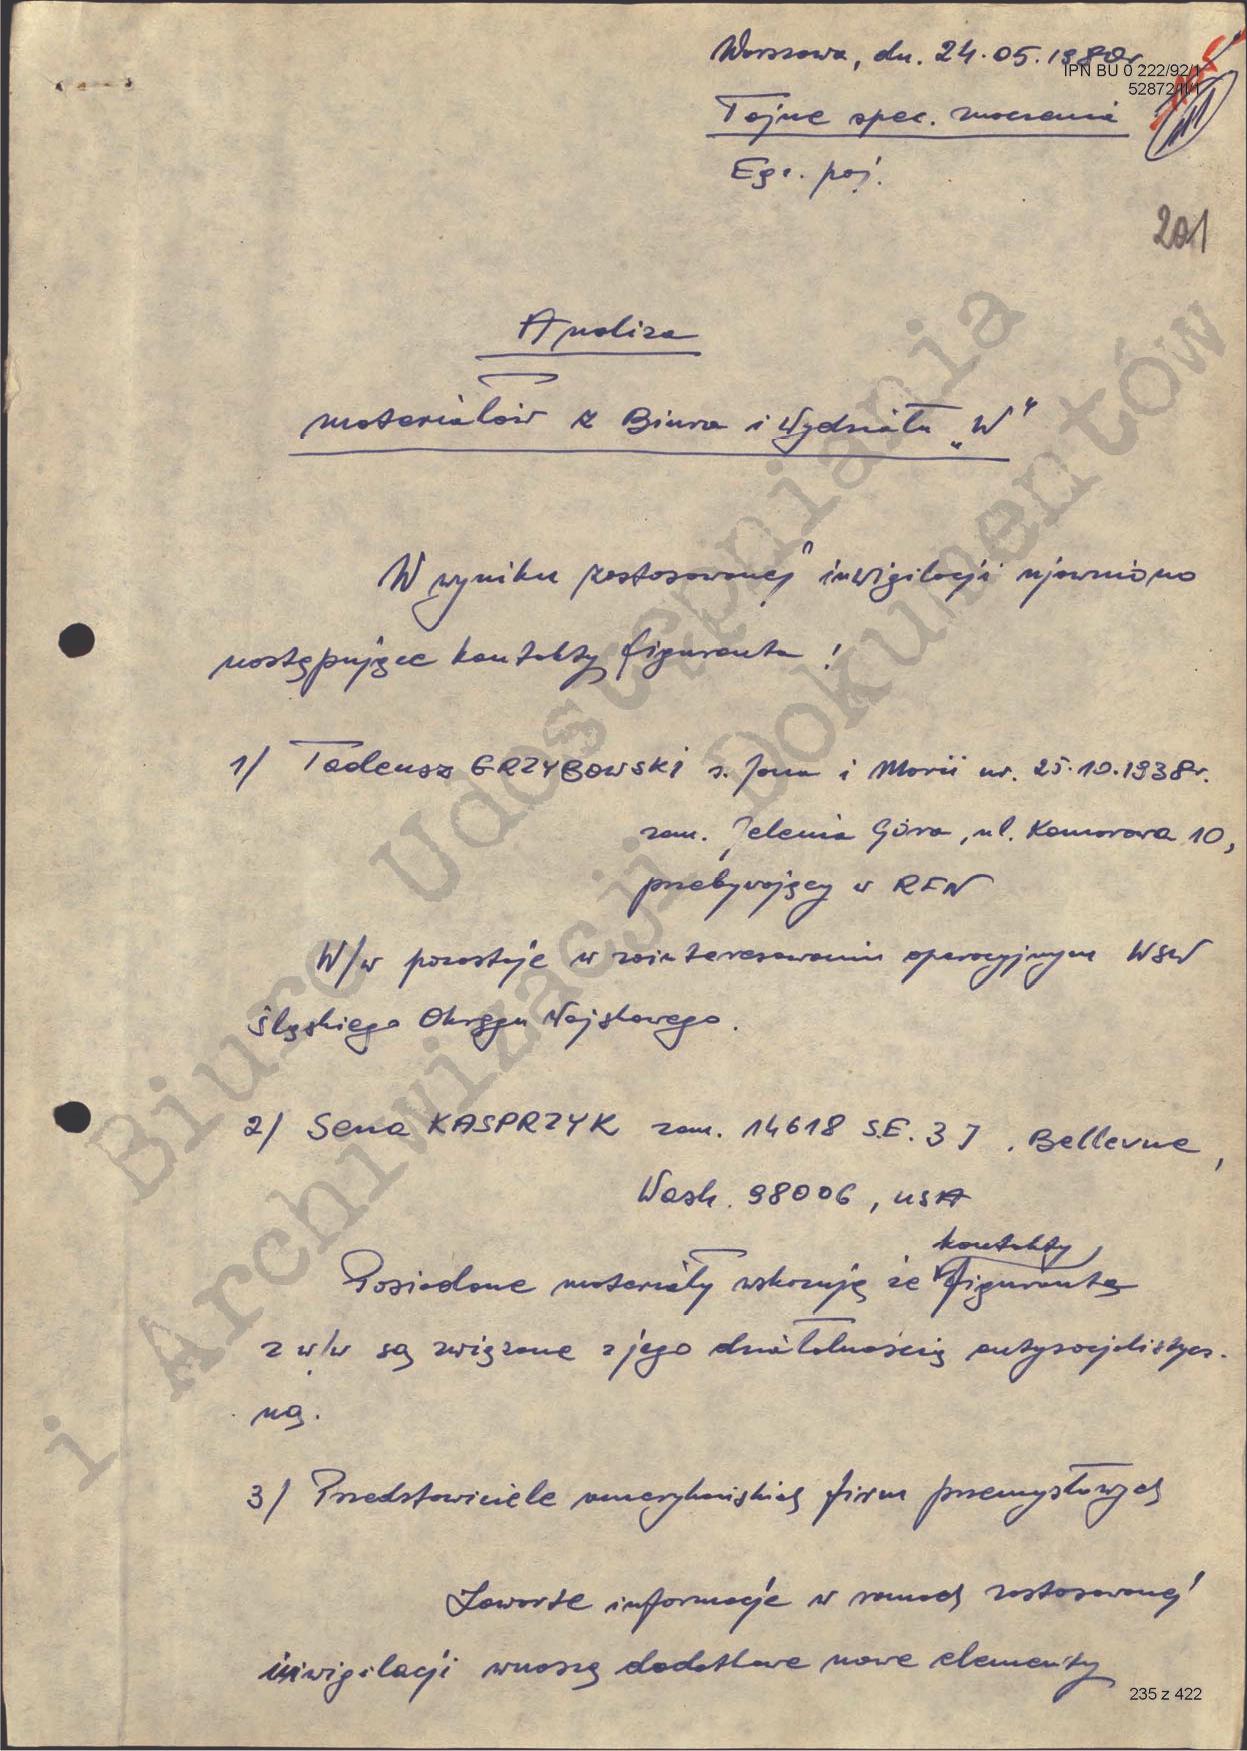 Warszawa, dn. 24.05.1980r.
IPN BU 0 222/92/1
52872/II/1
Tajne spec. znaczenia
Egz. poj.
201
Analiza
materiałów z Biura i Wydziału „W"
W wyniku zastosowanej inwigilacji ujawniono
następujące kontakty figuranta :
1/ Tadeusz GRZYBOWSKI s. Jana i Marii ur. 25.10.1938r.
zam. Jelenia Góra, ul. Komorowa 10,
przebywający w RFN
W/w pozostaje w zainteresowaniu operacyjnym WSW
Śląskiego Okręgu Wojskowego.
2/ Sena KASPRZYK zam. 14618 S.E. 3 J . Bellevue,
Wash. 98006, USA
kontakty
Posiadane materiały wskazują że figuranta
z w/w są związane z jego działalnością antysocjalistycz-
ną.
3/ Przedstawiciele amerykańskich firm przemysłowych
Zawarte informacje w ramach zastosowanej
inwigilacji wnoszą dodatkowe nowe elementy
235 z 422
Biuro Udostępniania
i Archiwizacji Dokumentów